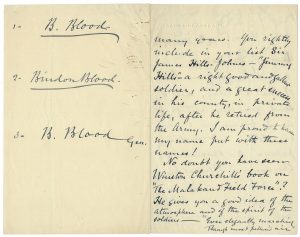 1- B. Blood
2- Bindon Blood.
3- B. Blood
Gen.
many years. You rightly
include in your list Sir
James Hills-Johnes – "Jimmy
Hills" a right good and gallant
soldier, and a great success
in his county, in private
life, after he retired from
the Army. I am proud to have
my name put with these
names!
No doubt you have seen
Winston Churchill's book on
"The Malakand Field Force"?
He gives you a good idea of the
atmosphere and of the spirit of the
soldiers – "Ever elegantly marching
Through most pathless